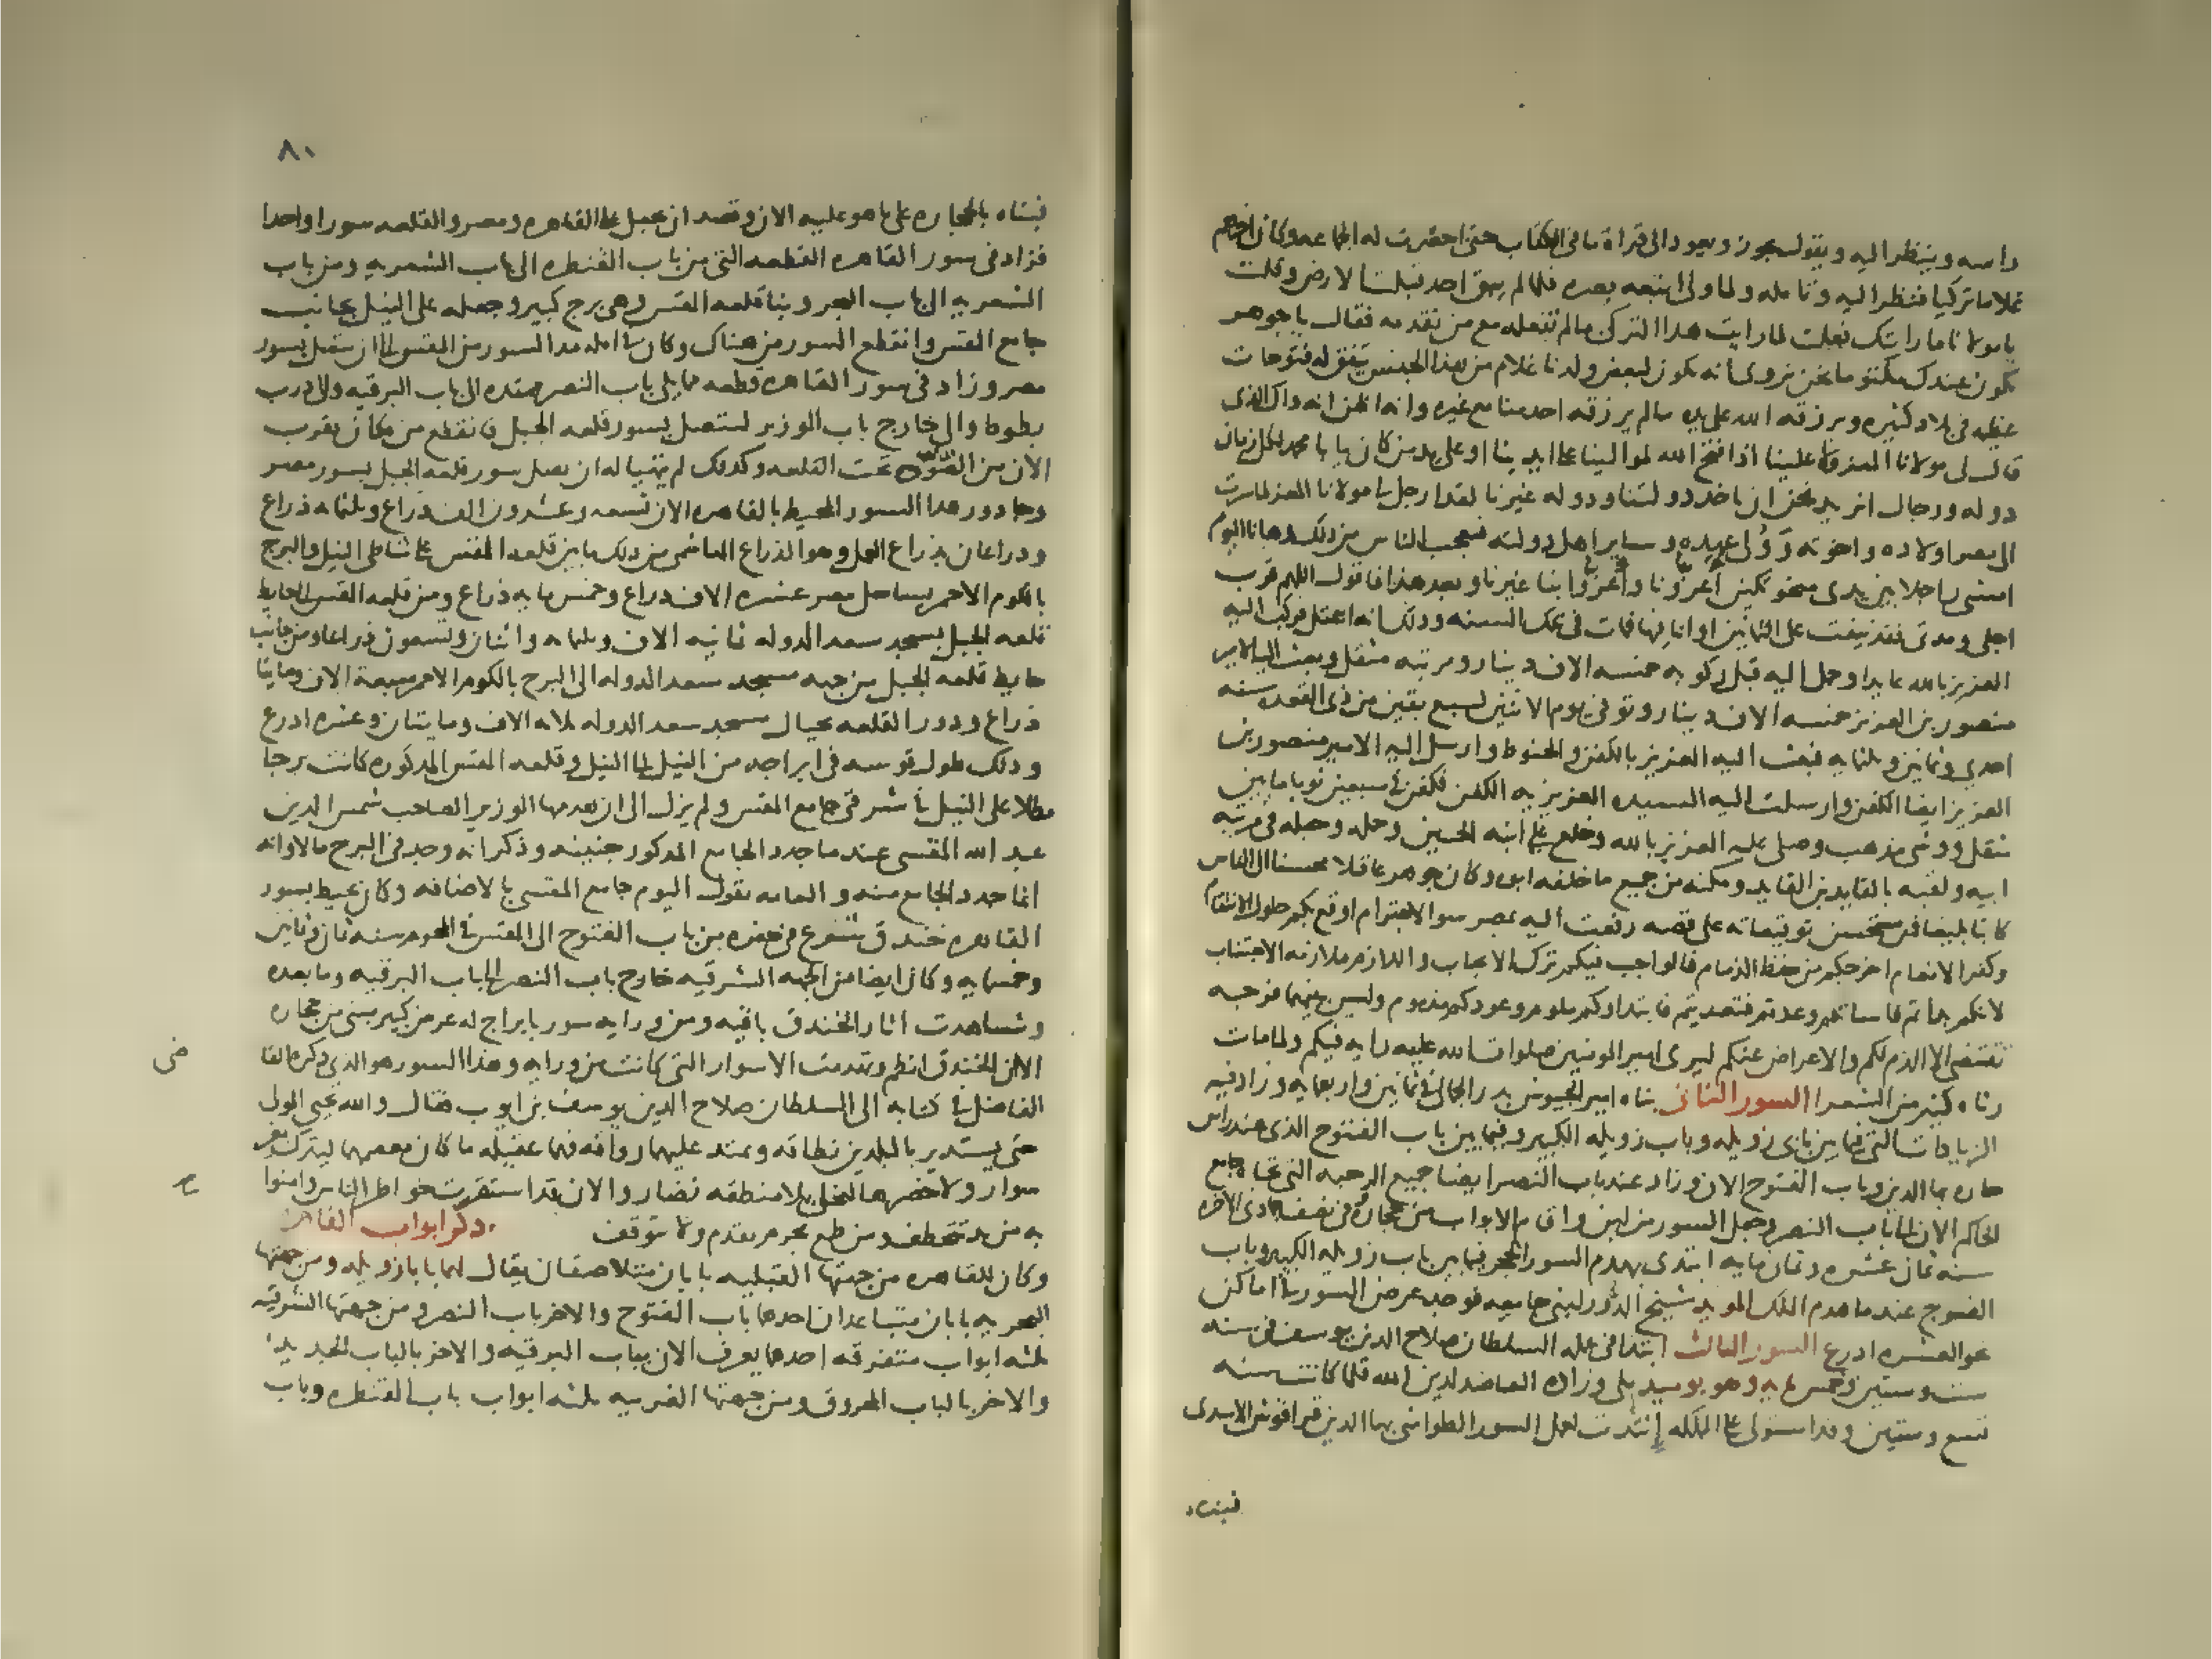 راسه وينظر اليه ويقول يجوز ويعود الى قراة ما فى الكتاب حتى احضرت له الجماعه وكان اخرهم
غلاما تركيا فنظر اليه وتامله ولما ولى اتبعه بصره فلما لم يبق احد قبلت الارض وقلت
يا مولانا ما رايتك فعلت لما رايت هذا التركى ما لم تفعله مع من تقدمه فقال يا جوهر
يكون عندك مكتوما نحن نروى انه يكون لبعض ولدنا غلام من هذا الجنس يتفق له فتوحات
عظيمه فى بلاد كثيره ويرزقه الله على يده ما لم يرزقه احد منا مع غيره وانه اظن انه ذاك الذى
قال لى مولانا المعز ولا علينا اذا فتح الله لموالينا على ايدينا او على يد من كان يا با محمد لكل زمان
دوله ورجال انريد نحن ان ناخذ دولتنا ودوله غيرنا لقد ارجل لى مولانا المعز لما سرت
الى مصر اولاده واخوته وولى عهده وساير اهل دولته فتعجب الناس من ذلك وها انا اليوم
امشى راجلا بين يدى منجوتكين اعزونا واعزوا بنا غيرنا وبعد هذا فاقول اللهم قرب
اجلى ومدتى فقد نيفت على الثمانين او انا فيها فمات فى تلك السنه وذلك انه اعتل فركب اليه
العزيز بالله عايدا وحمل اليه قبل ركوبه خمسه الاف دينار ومرتبه مثقل وبعث اليه الامير
منصور بن العزيز خمسه الاف دينار وتوفى يوم الاثنين لسبع بقين من ذى القعده سنه
احدى وثمانين وثلثمايه فبعث اليه العزيز بالكفن والحنوط وارسل اليه الامير منصور بن
العزيز ايضا الكفن وارسلت اليه السيده العزيزيه الكفن فكفن فى سبعين ثوبا ما بين
مثقل ووشى مذهب وصلى عليه العزيز بالله وخلع على ابنه الحسين وحمله وجعله فى مرتبه
ابيه ولقبه بالقايد بن القايد ومكنه من جميع ما خلفه ابوه وكان جوهر عاقلا محسنا الى الناس
كاتبا بليغا فمن مستحسن توقيعاته على قصه رفعت اليه بمصر سوا الاجترام اوقع بكم حلول الانتقام
وكفر الانعام اخرجكم من حفظ الذمام فالواجب فيكم ترك الايجاب واللازم ملازمه الاجتناب
لانكم بداتم فاساتم وعدتم فتعديتم فابتداوكم ملوم وعودكم مذموم وليس بينهما فرجه
تقتضى الا الذم لكم والاعراض عنكم ليرى امير المومنين صلوات الله عليه رايه فيكم ولما مات
رثاه كثير من الشعرا السور الثانى بناه امير الجيوش بدر الجمالى فى ثمانين واربعمايه وزاد فيه
الزيادات التى فيما بين بابى زويله وباب زويله الكبير وفيما بين باب الفتوح الذى عند راس
حاره بها الدين وباب الفتوح الان وزاد عند باب النصر ايضا جميع الرحبه التى تجاه جامع
الحاكم الان الى باب النصر وجعل السور من لبن واقام الابواب من حجاره وفى نصف جمادى الاخره
سنه ثمان عشره وثمان مايه ابتدى بهدم السور الحجر فيما بين باب زويله الكبير وباب
الفروج عندما هدم الملك المويد شيخ الدور ليبنى جامعه فوجد عرض السور فى اماكن
نحو العشره ادرع السور الثالث ابتدا فى عمله السلطان صلاح الدين يوسف فى سنه
ست وستين وخمس مايه وهو يوميد على وزاره العاضد لدين الله فلما كانت سنه
تسع وستين وقد استولى على المملكه انتدب لعمل السور الطواشى بها الدين قراقوش الاسدى
فبناه
٨٠
فبناه بالحجاره على ما هو عليه الان وقصد ان يجعل على القاهره ومصر والقلعه سورا واحدا
فزاد فى سور القاهره القطعه التى من باب القنطره الى باب الشعريه ومن باب
الشعريه الى باب البحر وبنا قلعه المقس وهى برج كبير وجعله على النيل بجانب
جامع المقس وانقطع السور من هناك وكان فى امله مد السور من المقس الى ان يتصل بسور
مصر وزاد فى سور القاهره قطعه مما يلى باب النصر ممتده الى باب البرقيه والى درب
بطوط والى خارج باب الوزير لتتصل بسور قلعه الجبل فانقطع من مكان يقرب
الان من الصوه تحت القلعه وكذلك لم يتهيا له ان يصل سور قلعه الجبل بسور مصر
وجا دور هذا السور المحيط بالقاهره الان تسعه وعشرون الف ذراع وثلثمايه ذراع
وذراعان بذراع العمل وهو الذراع الهاشمى من ذلك ما بين قلعه المقس على شاطى النيل والبرج
بالكوم الاحمر بساحل مصر عشره الاف ذراع وخمس مايه ذراع ومن قلعه المقس الى حايط
قلعه الجبل بمسجد سعد الدوله ثمانيه الاف وثلثمايه واثنان وتسعون ذراعا ومن جانب
حايط قلعه الجبل من جهه مسجد سعد الدوله الى البرج بالكوم الاحمر سبعة الاف ومايتا
ذراع ودور القلعه بحيال مسجد سعد الدوله ثلاثه الاف ومايتان وعشره ادرع
وذلك طول قوسه فى ابراجه من النيل الى النيل وقلعه المقس المذكوره كانت برجا
مطلا على النيل فى شرقى جامع المقس ولم يزل الى ان هدمها الوزير الصاحب شمس الدين
عبد الله المقسى عندما جدد الجامع المذكور جنينه وذكر انه وجد فى البرج مالا وانه
انما جدد الجامع منه والعامه تقول اليوم جامع المقسى بالاضافه وكان يحيط بسور
القاهره خندق شرع فى حفره من باب الفتوح الى المقس فى المحرم سنه ثمان وثمانين
وخمسمايه وكان ايضا من الجهه الشرقيه خارج باب النصر الى باب البرقيه وما بعده
وشاهدت اثار الخندق باقيه ومن ورايه سور بابراج له عرض كبير مبنى من حجاره
الا ان الخندق انطم وتهدمت الاسوار التى كانت من ورايه وهذا السور هو الذى ذكره القا
ضى
الفاضل فى كتابه الى السلطان صلاح الدين يوسف بن ايوب فقال والله يحيى المولى
حتى يستدير بالبلدين نطاقه ويمتد عليهما رواقه فما عقيله ما كان معصمها ليترك بغير
سوار ولا خصرها ليتحلى بلا منطقه نضار والان قد استقرت خواطر الناس وامنوا
به من يد تتخطف ومن طمع مجرم يقدم ولا يتوقف ذكر ابواب القاهره
وكان للقاهره من جهتها القبليه بابان متلاصقان يقال لهما بابا زويله ومن جهتها
البحريه بابان متباعدان احدهما باب الفتوح والاخر باب النصر ومن جهتها الشرقيه
ثلثه ابواب متفرقه احدها يعرف الان بباب البرقيه والاخر بالباب الجديد
والاخر بالباب المحروق ومن جهتها الغربيه ثلثه ابواب باب القنطره وباب